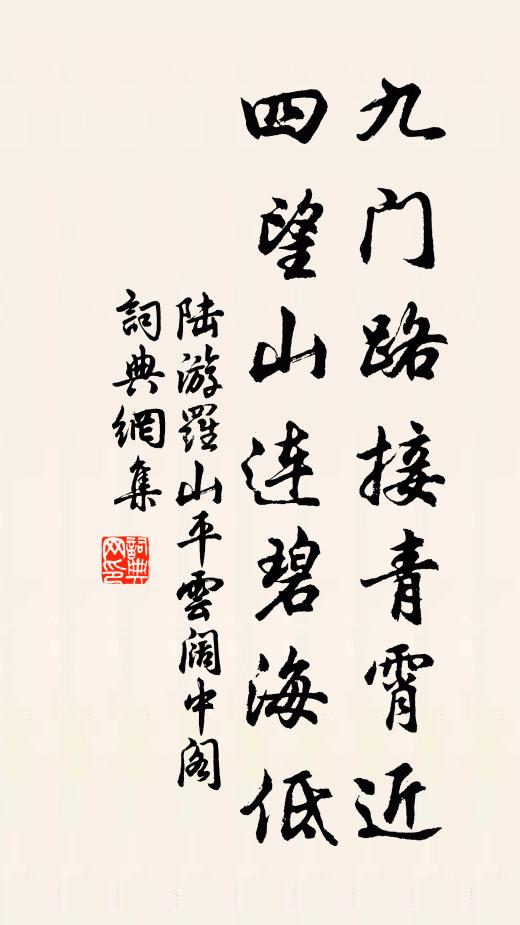 九门路接青霄近
四望山连碧海低
陆游羅山平雲阔中阁
詞典網集
詞典网印